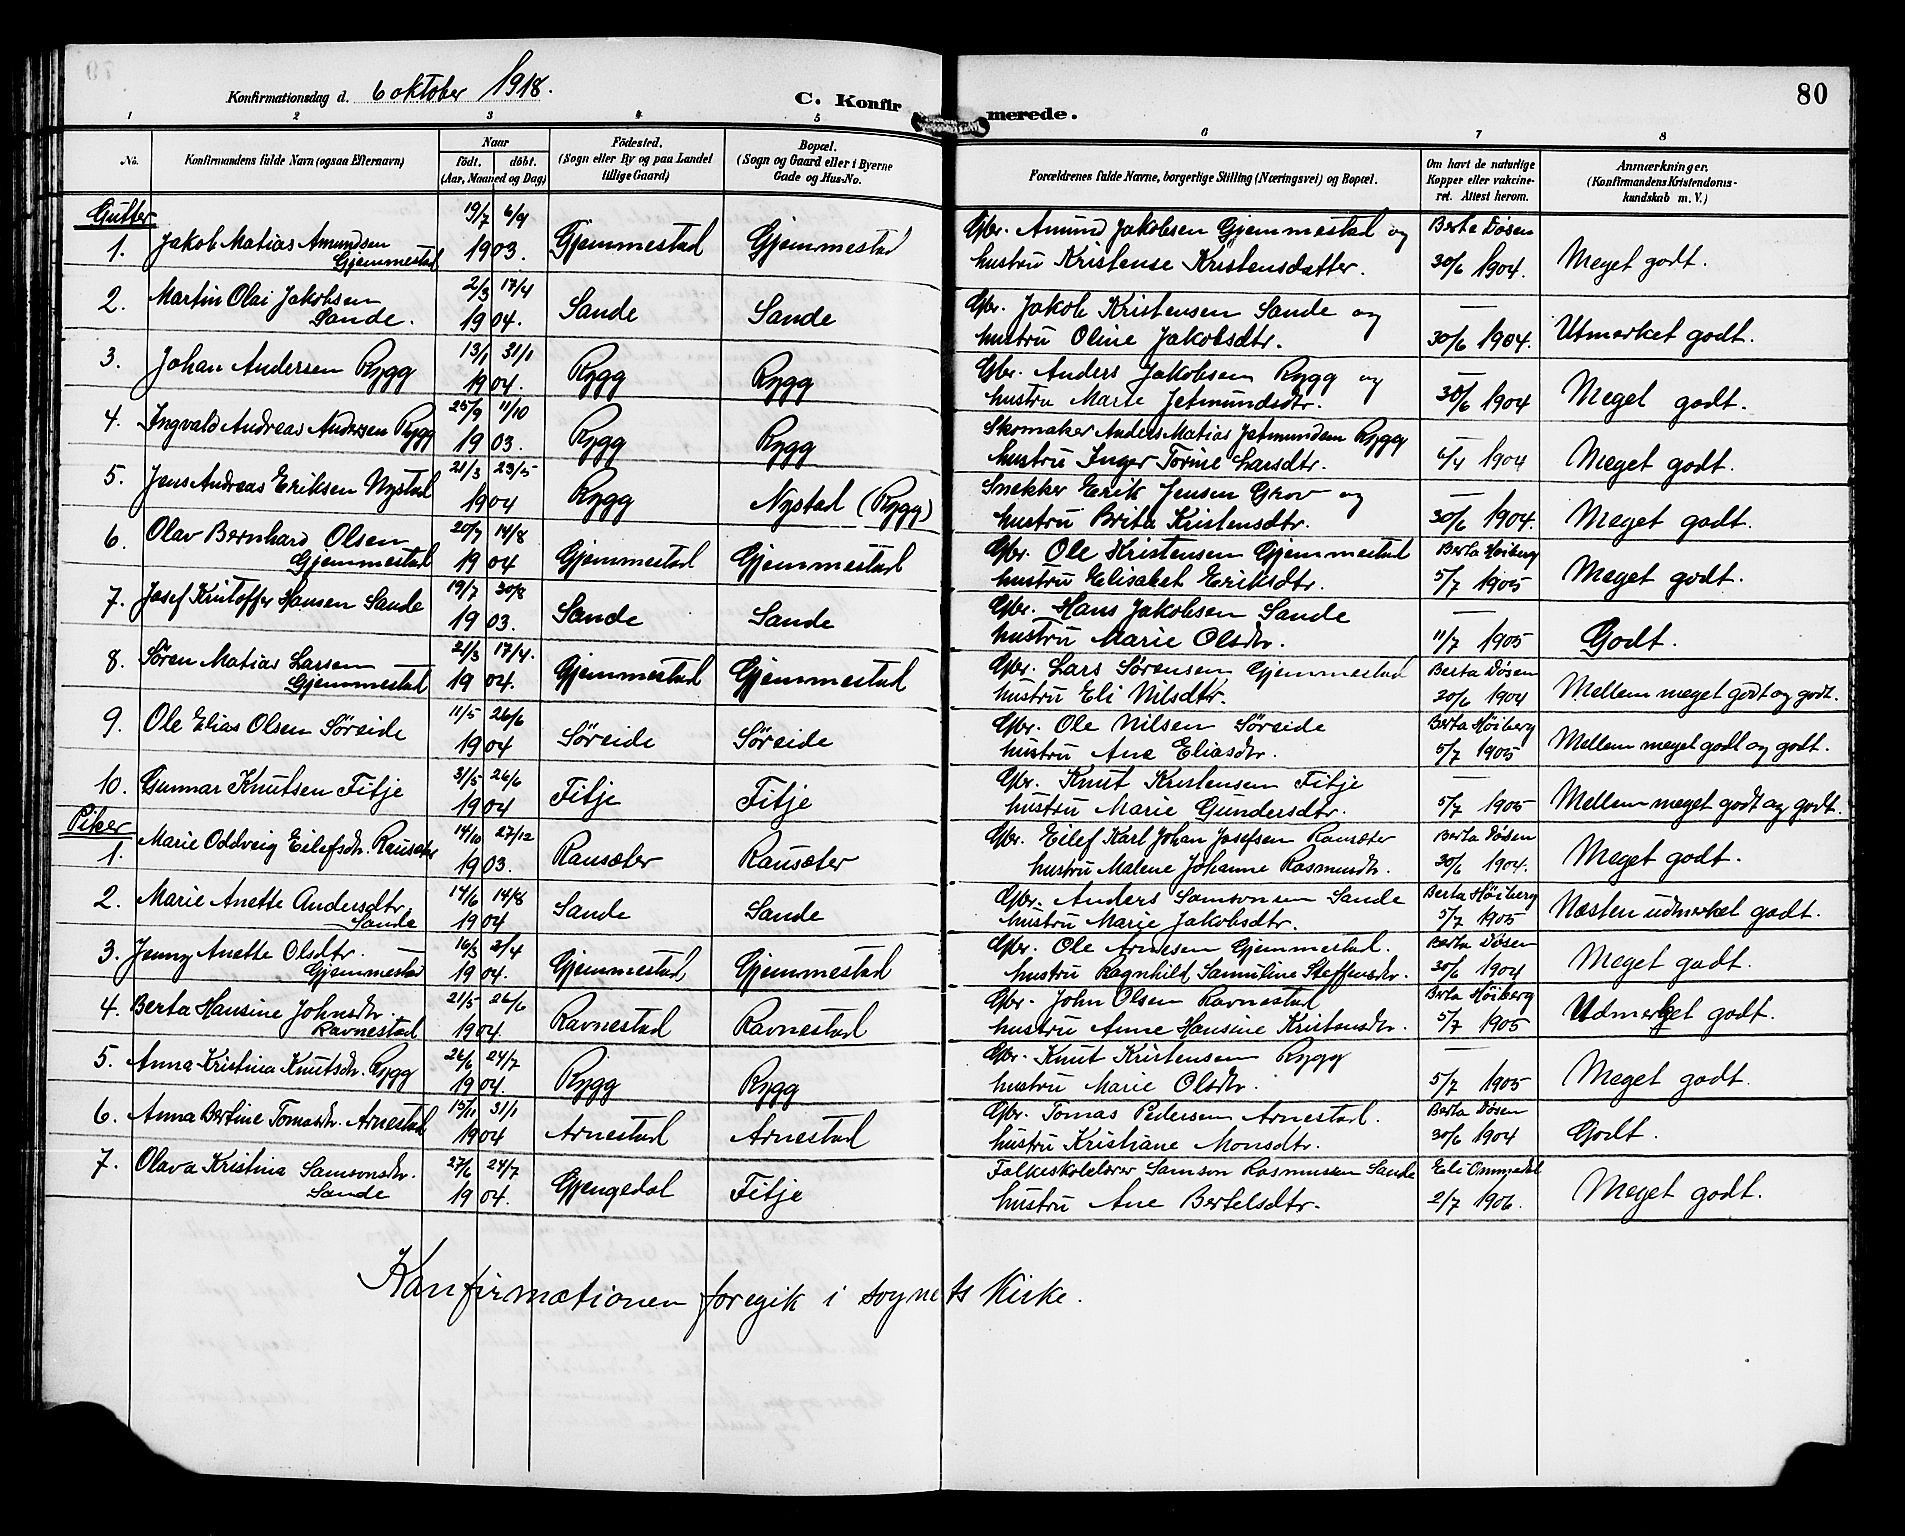 Konfirmationsdag d. 6 oktober 1918.
C. Konfirmerede.
80
1 2 3 4 5 6 7 8
No. Konfirmandens fulde Navn (ogsaa Efternavn) Naar født. døbt. (Aar, Maaned og Dag) Fødested. (Sogn eller By og paa Landet tillige Gaard) Bopæl. (Sogn og Gaard eller i Byerne Gade og Hus-No. Forældrenes fulde Navne, borgerlige Stilling (Næringsvei) og Bopæl. Om havt de naturlige Kopper eller vakcineret. Attest herom. Anmærkninger. (Konfirmandens Kristendomskundskab m. V.)
Gutter
19/7 6/9 Gbr. Amund Jakobsen Gjemmestad og Berta Døsen
1. Jakob Matias Amundsen Gjemmestad 1903. Gjemmestad Gjemmestad hustru Kristense Kristensdatter. 30/6 1904. Meget godt.
2/3 17/4 Gbr. Jakob Kristensen Sande og —
2. Martin Olai Jakobsen Sande. 1904. Sande Sande hustru Oline Jakobsdtr. 30/6 1904. Utmerket godt.
13/1 31/1 Gbr. Anders Jakobsen Rygg og —
3. Johan Andersen Rygg 1904. Rygg Rygg hustru Marte Jetmundsdtr. 30/6 1904 Meget godt.
25/9 11/10 Skomaker Anders Matias Jetmundsen Rygg —
4. Ingvald Andreas Andersen Rygg 1903. Rygg Rygg hustru Inger Torine Larsdtr. 6/4 1904 Meget godt.
21/3 23/5 Snekker Erik Jensen Grov og —
5. Jens Andreas Eriksen Nystad 1904 Rygg Nystad (Rygg) hustru Brita Kristensdtr. 30/6 1904. Meget godt.
20/7 14/8 Gbr. Ole Kristensen Gjemmestad Berta Høiberg
6. Olav Bernhard Olsen Gjemmestad 1904 Gjemmestad Gjemmestad hustru Elisabet Eriksdtr. 5/7 1905 Meget godt.
19/7 30/8 Gbr. Hans Jakobsen Sande —
7. Josef Kristoffer Hansen Sande 1903. Sande Sande hustru Marie Olsdtr. 11/7 1905 Godt.
21/3 17/4. Gbr. Lars Sørensen Gjemmestad Berta Døsen
8. Søren Matias Larsen Gjemmestad 1904. Gjemmestad Gjemmestad hustru Eli Nilsdtr. 30/6 1904 Mellem meget godt og godt.
11/5 26/6 Gbr. Ole Nilsen Søreide Berta Høiberg
9. Ole Elias Olsen Søreide 1904 Søreide Søreide hustru Ane Eliasdtr. 5/7 1905 Mellem meget godt og godt.
31/5 26/6 Gbr. Knut Kristensen Fitje —
10. Gunnar Knutsen Fitje 1904 Fitje Fitje hustru Marie Gundersdtr. 5/7 1905 Mellem meget godt og godt.
Piker
14/10 27/12 Gbr. Eilef Karl Johan Josefsen Rausæter Berta Døsen
1. Marie Oddveig Eilefsdtr. Rausæter 1903. Rausæter Rausæter hustru Malene Johanne Rasmusdtr. 30/6 1904. Meget godt.
14/6 14/8 Gbr. Anders Samsonsen Sande Berta Høiberg
2. Marie Anette Andersdtr. Sande 1904 Sande Sande hustru Marie Jakobsdtr. 5/7 1905 Næsten udmerket godt.
16/3 2/4 Gbr. Ole Arnesen Gjemmestad. Berta Døsen
3. Jenny Anette Olsdtr. Gjemmestad 1904. Gjemmestad Gjemmestad hustru Ragnhild Samuline Steffensdtr. 30/6 1904 Meget godt.
21/5 26/6 Gbr. John Olsen Ravnestad Berta Høiberg
4. Berta Hansine Johnsdtr. Ravnestad 1904. Ravnestad Ravnestad hustru Anne Hansine Kristensdtr. 5/7 1905 Udmerket godt.
26/6 24/7 Gbr. Knut Kristensen Rygg —
5. Anna Kristina Knutsdtr. Rygg 1904. Rygg Rygg hustru Marie Olsdtr. 5/7 1905 Meget godt.
15/11 31/1 Gbr. Tomas Pedersen Arnestad. Berta Døsen
6. Anna Bertine Tomasdtr. Arnestad 1904 Arnestad Arnestad hustru Kristiane Monsdtr. 30/6 1904 Godt.
27/6 24/7 Folkeskolelærer Samson Rasmussen Sande Eli Ommedal
7. Olava Kristina Samsonsdtr. Sande 1904. Gjengedal Fitje hustru Ane Bertelsdtr. 2/7 1906. Meget godt.
Konfirmationen foregik i sognets Kirke.